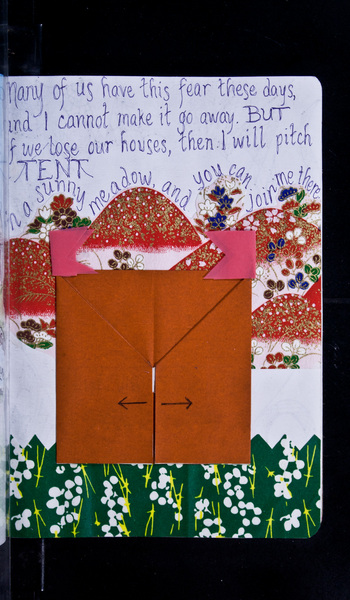 Many of us have this fear these days,
and I cannot make it go away. BUT
if we lose our houses, then I will pitch
TENT
in a sunny meadow, and you can join me there